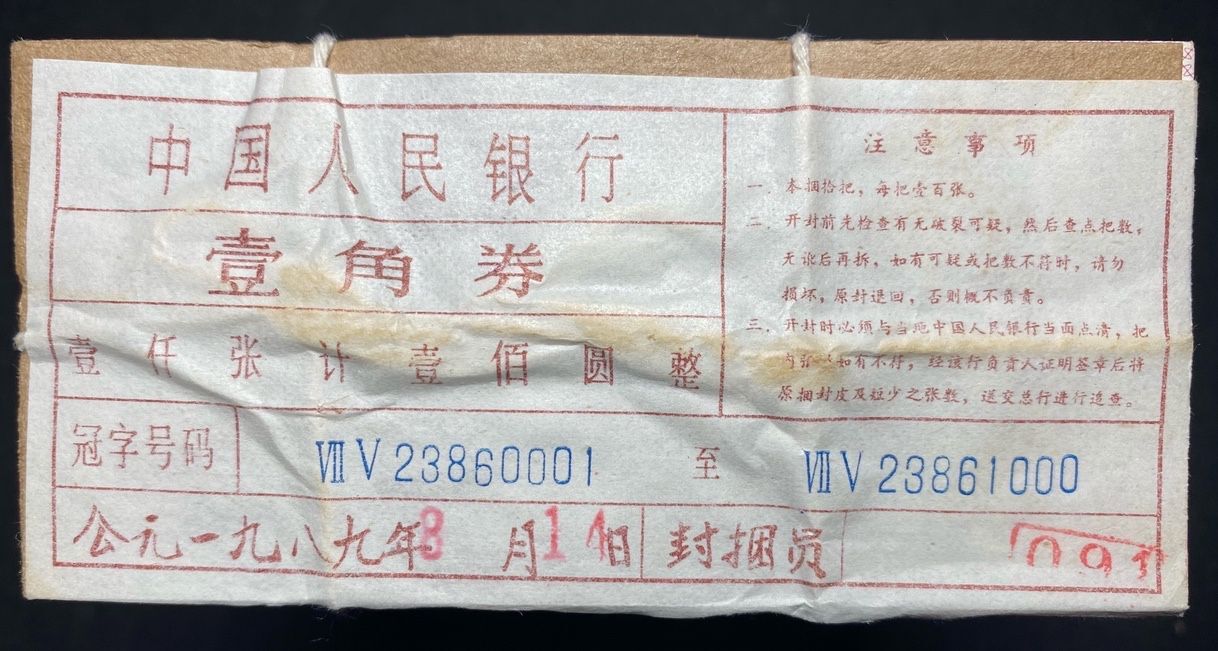 中国人民银行
壹角券
壹仟张计壹佰圆整
注意事项
一．本捆拾把，每把壹百张。
二．开封前先检查有无破裂可疑，然后查点把数，
无讹后再拆，如有可疑或把数不符时，请勿
损坏，原封退回，否则概不负责。
三．开封时必须与当地中国人民银行当面点清，把
内张 如有不符，经该行负责人证明签章后将
原捆封皮及短少之张数，送交总行进行追查。
冠字号码 Ⅶ Ⅴ 23860001 至 Ⅶ Ⅴ 23861000
公元一九八九年8月14日 封捆员 091